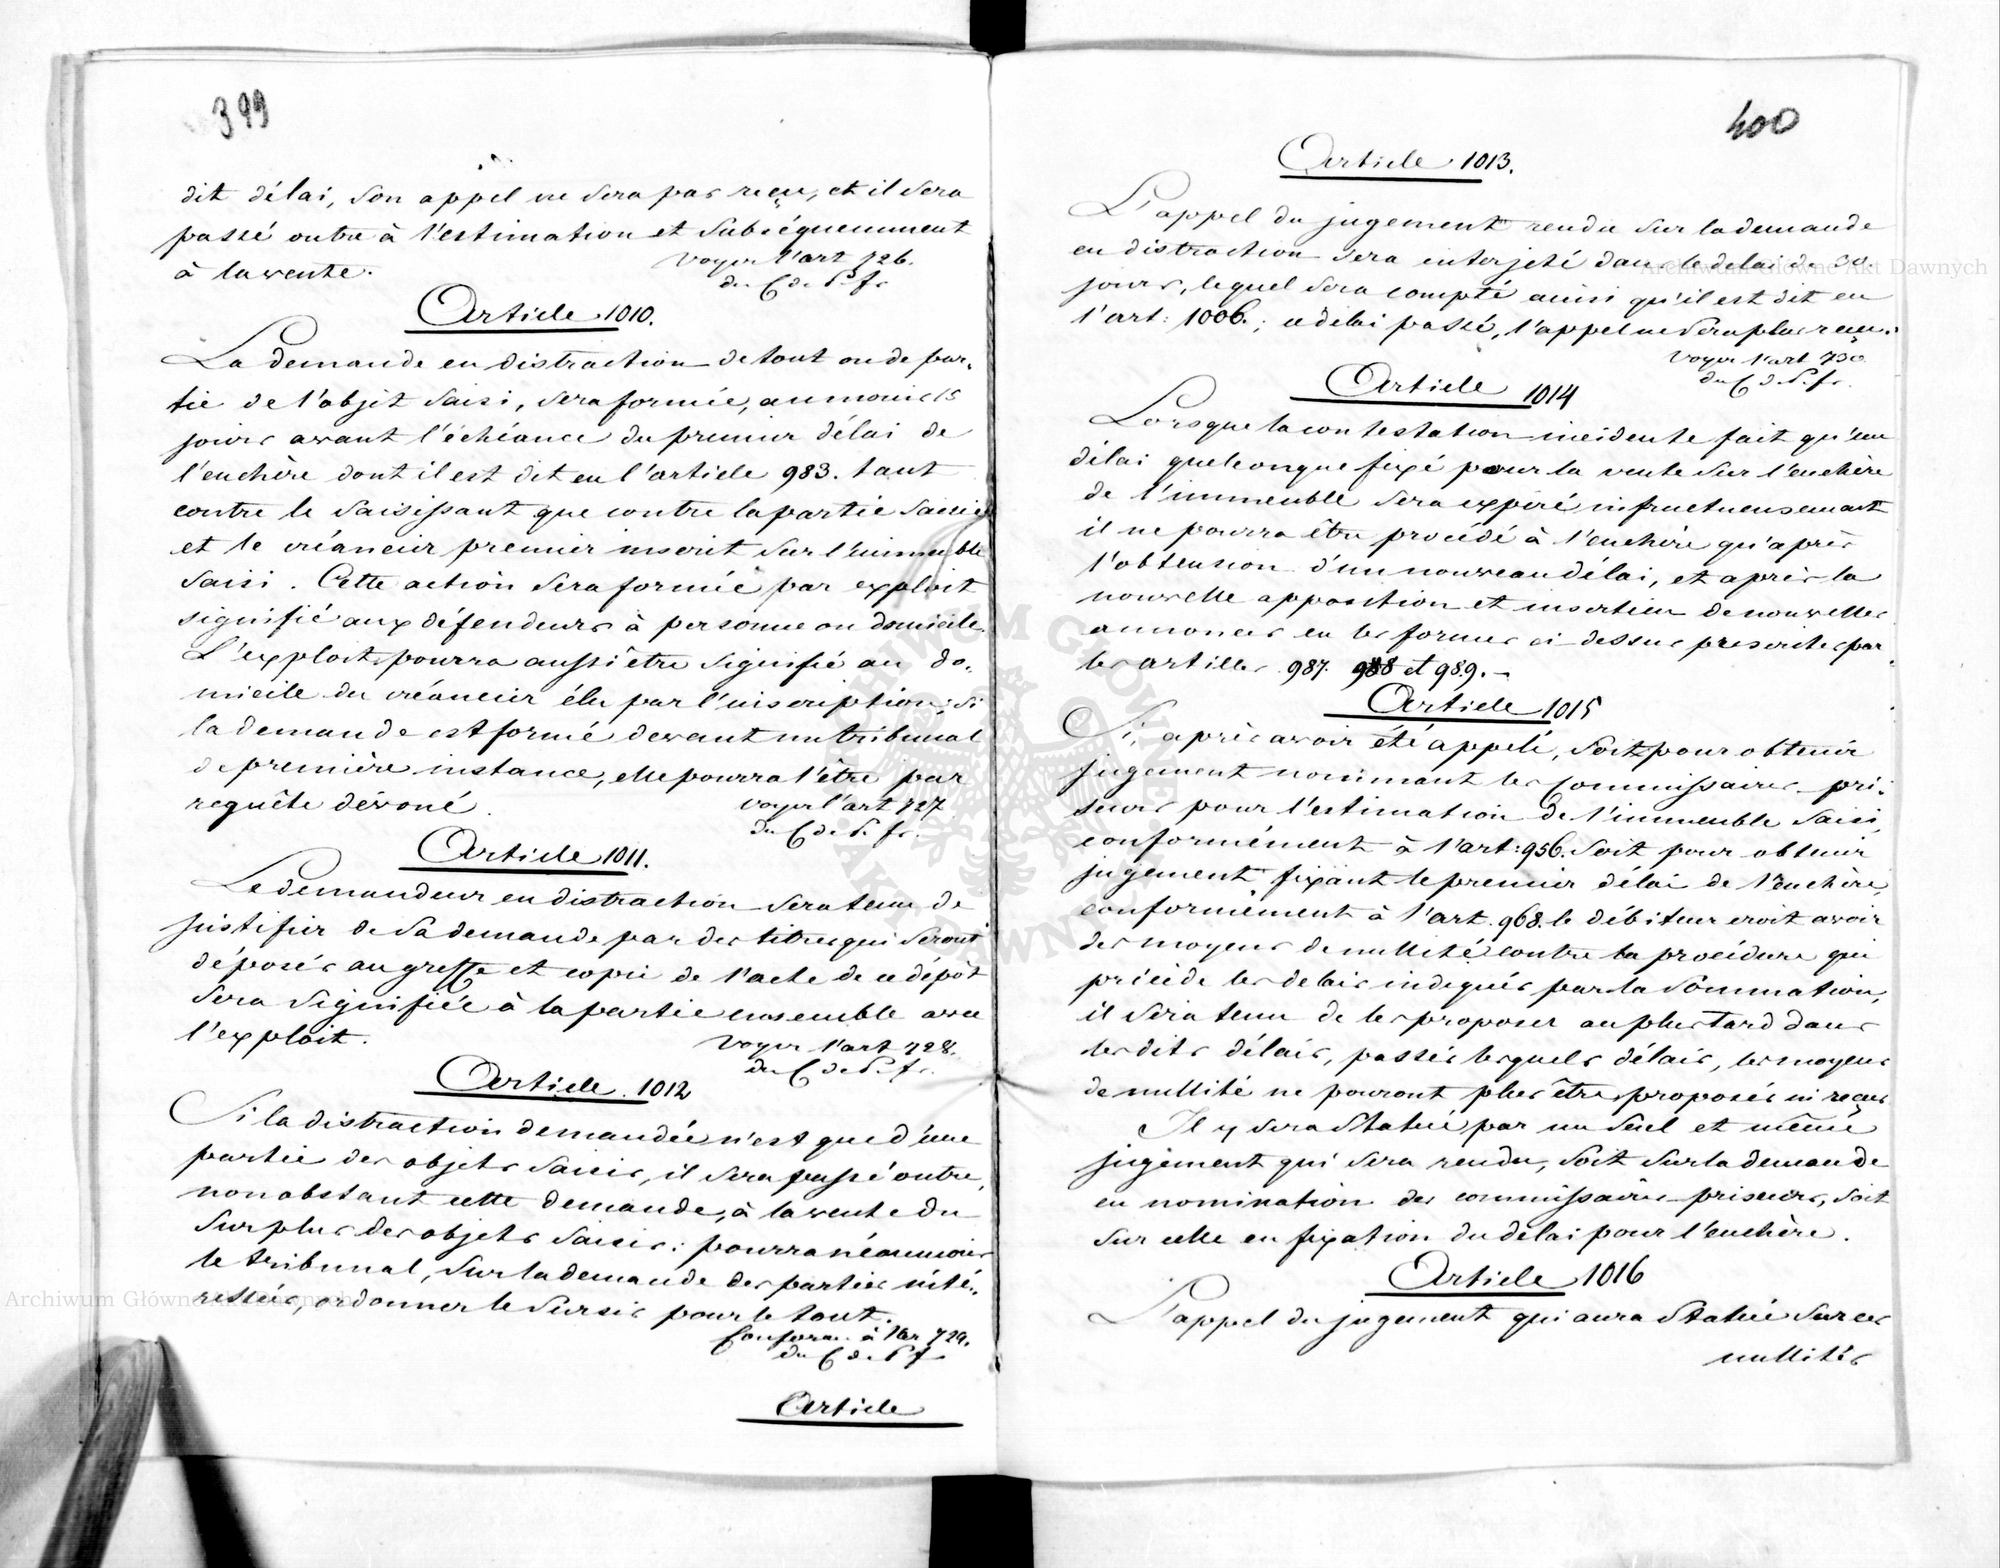 399
dit délai, son appel ne sera pas reçu, et il sera
passé outre à l'estimation et subséquemment
à la vente.
voyer l'art 726.
du C de P. fr
Article 1010.
La demande en distraction de tout ou de par-
tie de l'objet saisi, sera formée, au moins 15
jours avant l'échéance du premier délai de
l'enchère dont il est dit en l'article 983. tant
contre le saisissant que contre la partie saisie
et le créancier premier inscrit sur l'immeuble
saisi. Cette action sera formée par exploit
signifié aux défendeurs à personne ou domicile.
L'exploit pourra aussi être signifié au do-
micile du créancier élu par l'inscription; si
la demande est formé devant un tribunal
de première instance, elle pourra l'être par
requête
voyer l'art 727
du C de P. fr.
Article 1011.
Le demandeur en distraction sera tenu de
justifier de sa demande par des titres qui seront
déposés au greffe et copie de l'acte de ce dépôt
sera signifiée à la partie ensemble avec
l'exploit.
Voyer l'art 728.
du C de P. fr.
Article 1012
Si la distraction demandée n'est que d'une
partie des objets saisis, il sera passé outre,
nonobstant cette demande, à la vente du
surplus des objets saisis: pourra néanmoins
le tribunal, sur la demande des parties inté-
ressées, ordonner le sursis pour le tout.
Conform. à l'ar 729.
du C de P f
Article
400
Article 1013.
L'appel du jugement rendu sur la demande
en distraction sera interjeté dans le delai de 30.
jours, lequel sera compté ainsi qu'il est dit en
l'art: 1006.; ce delai passé, l'appel ne sera plus reçu.
Voyer l'art 730
du C de P. fr.
Article 1014
Lorsque la contestation incidente fait qu'un
délai quelconque fixé pour la vente sur l'enchère
de l'immeuble sera expiré infructueusement
il ne pourra être procédé à l'enchère qu'après
l'obtension d'un nouveau délai, et après la
nouvelle apposition et insertion de nouvelles
annonces en les formes ci-dessus prescrites par
les artilles 987. 988 et 989. -
Article 1015
Si, après avoir été appelé, soit pour obtenir
jugement nommant les commissaires-pri-
seurs pour l'estimation de l'immeuble saisi,
conformément à l'art: 956. soit pour obtenir
jugement fixant le premier délai de l'enchère,
conformément à l'art. 968. le débiteur croit avoir
des moyens de nullité contre la procédure qui
précède les delais indiqués par la sommation,
il sera tenu de les proposer au plus tard dans
les dits délais, passés lesquels délais, les moyens
de nullité ne pouront plus être proposés ni reçus
Il y sera statué par un seul et même
jugement qui sera rendu, soit sur la demande
en nomination des commissaires-priseurs, soit
sur celle en fixation du délai pour l'enchère.
Article 1016
L'appel du jugement qui aura statué sur ces
nullités
Archiwum Główne Akt Dawnych
Archiwum Główne Akt Dawnych